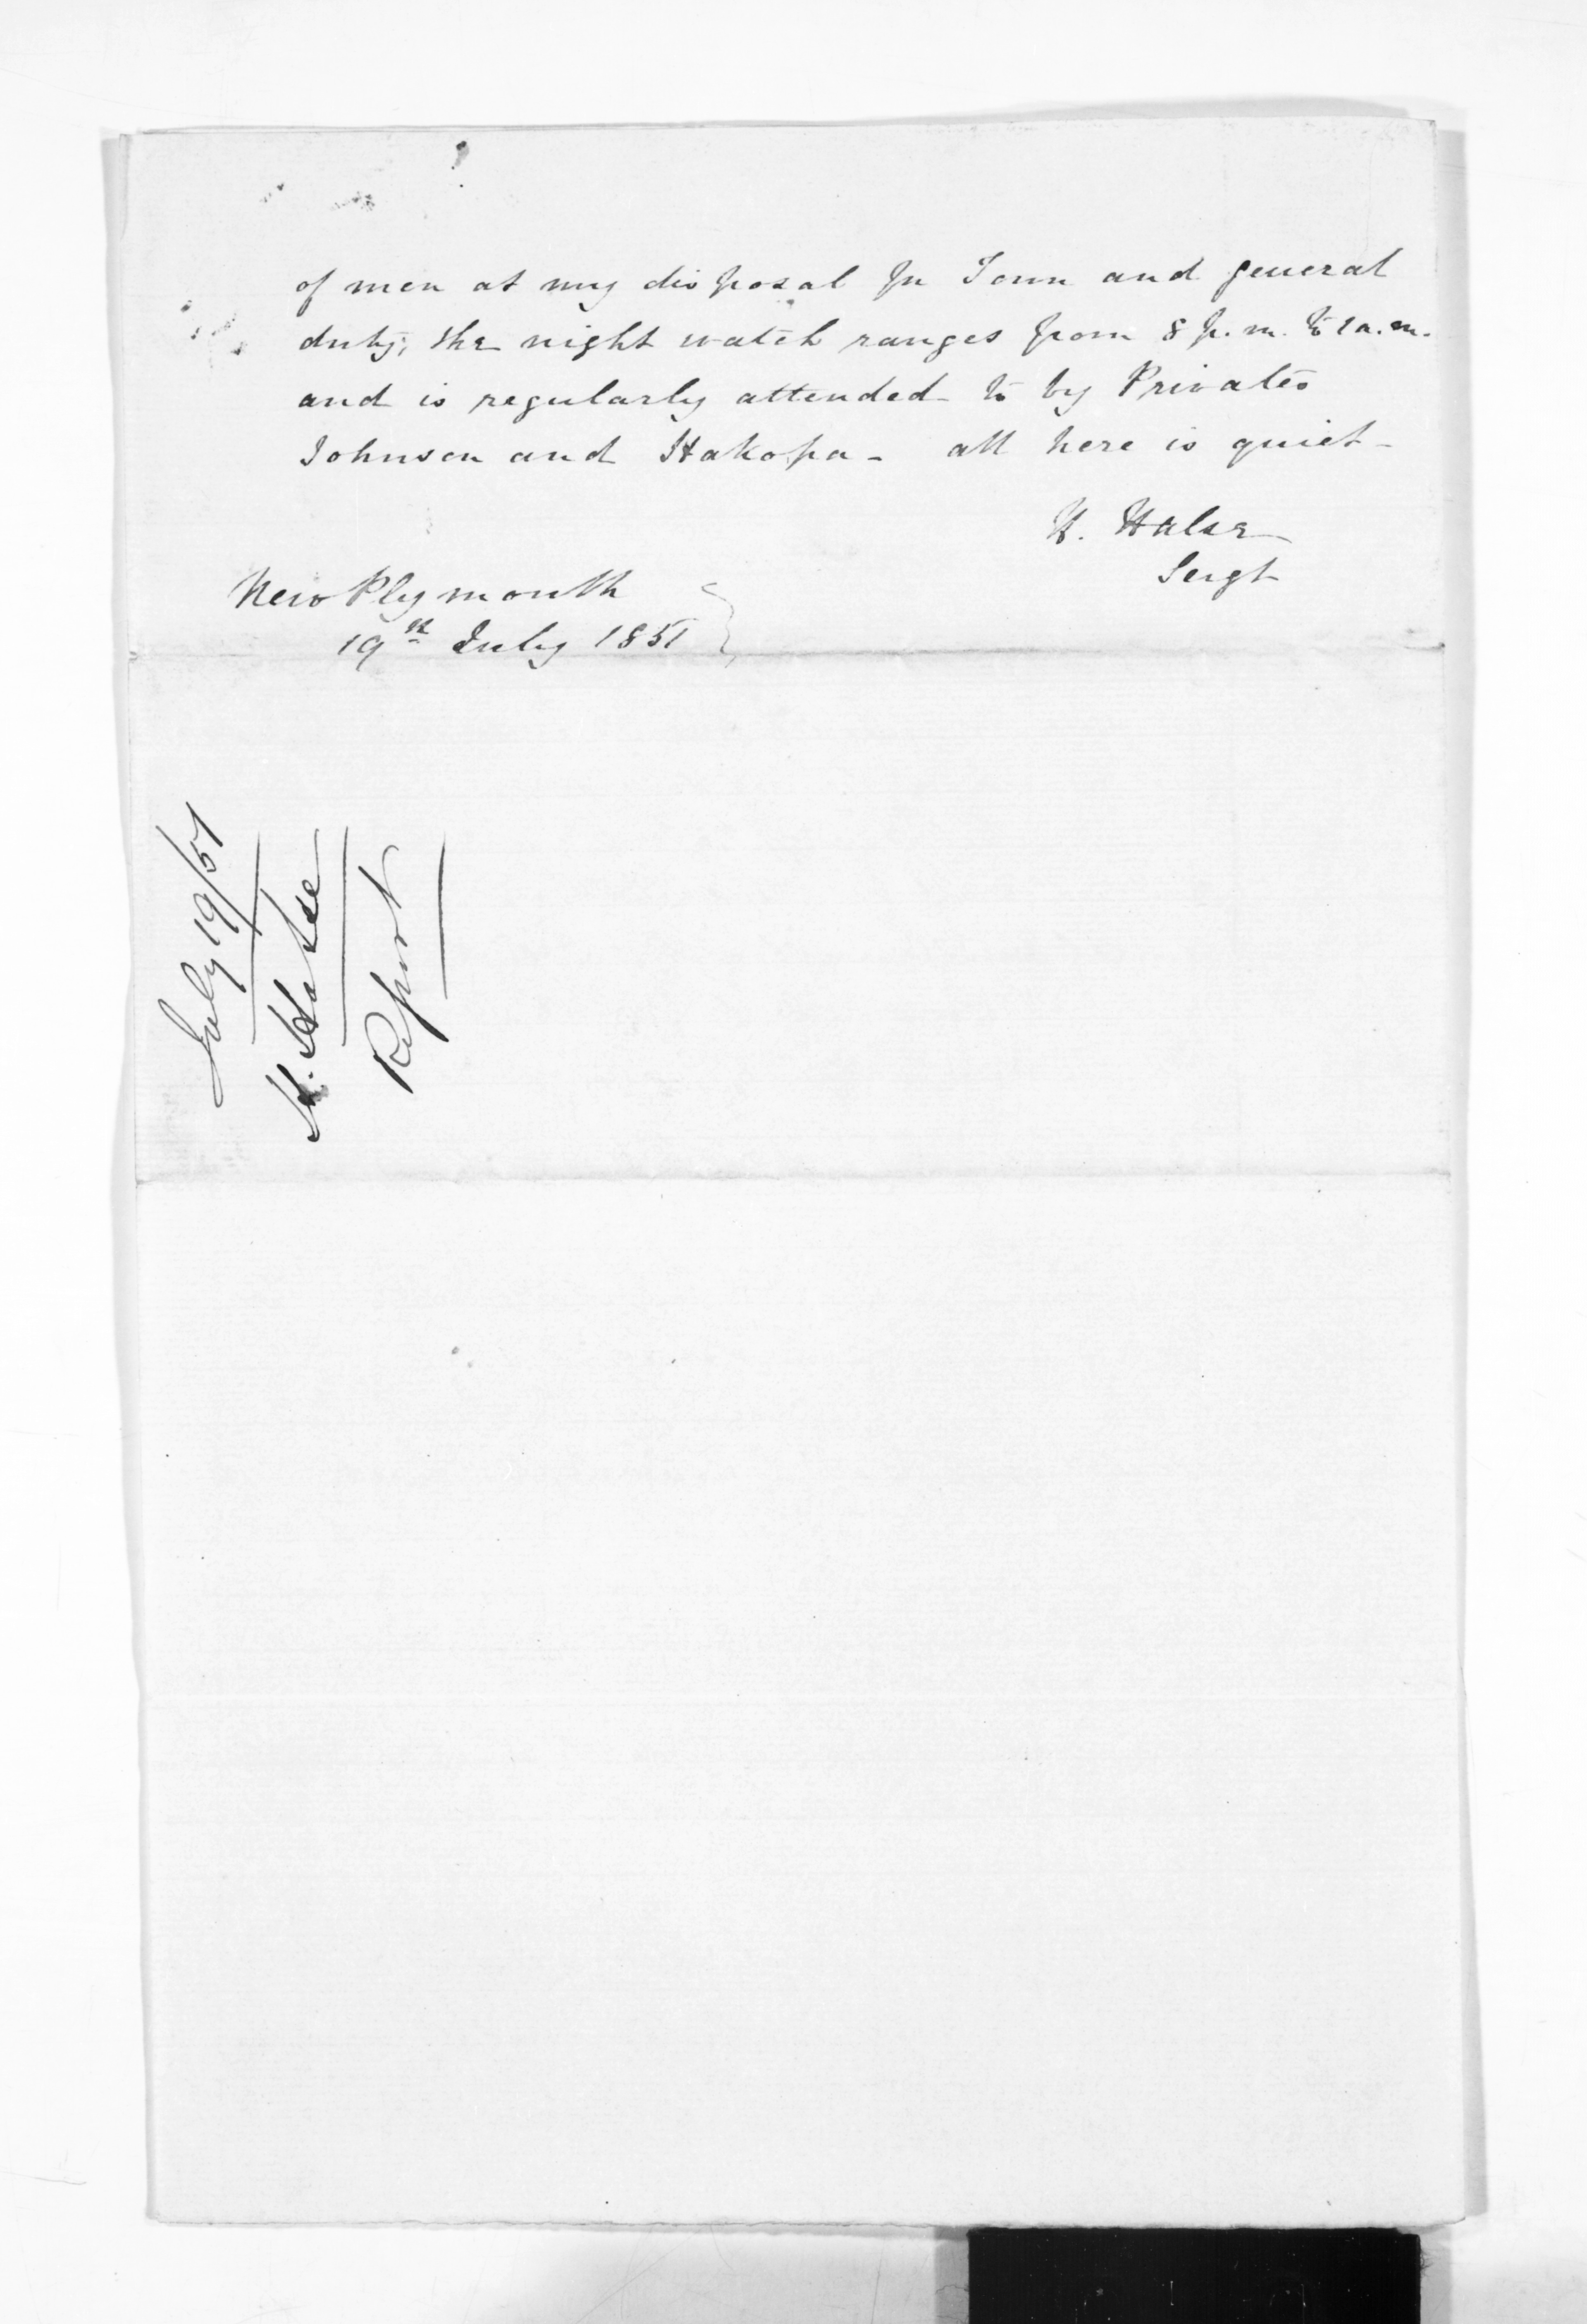 of men at my disposal for Town and general
duty; the night watch ranges from 8 p.m. to 1 a.m.
and is regularly attended to by Privates
Johnson and Hakopa - all here is quiet -
H. Halse
Sergt
New Plymouth
19th July 1851
July 19/51
H. Halse
Report